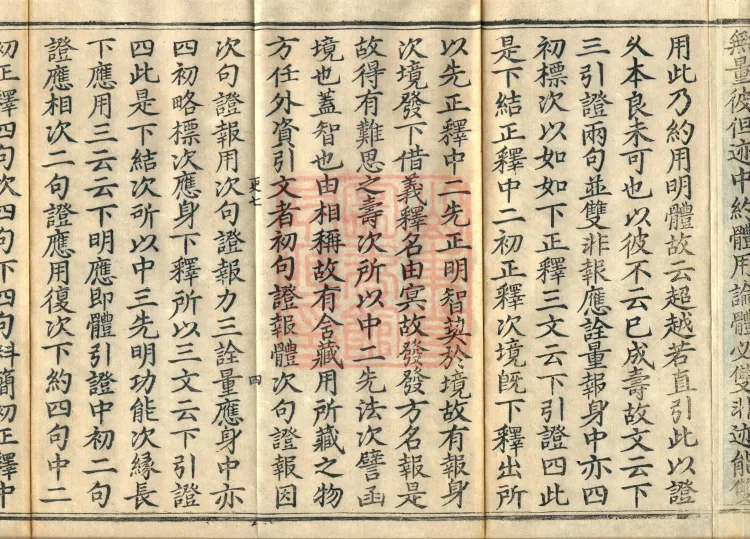 無量彼但迹中約體用論體必雙非迹能
用此乃約用明體故云超越若直引此以證
久本良未可也以彼不云已成壽故文云下
三引證兩句並雙非報應詮量報身中亦四
初標次以如如下正釋三文云下引證四此
是下結正釋中二初正釋次境既下釋出所
以先正釋中二先正明智契於境故有報身
次境發下借義釋名由冥故發發方名報是
故得有難思之壽次所以中二先法次譬函
境也蓋智也由相稱故有含藏用所藏之物
方任外資引文者初句證報體次句證報因
更七
四
次句證報用次句證報力三詮量應身中亦
四初略標次應身下釋所以三文云下引證
四此是下結次所以中三先明功能次緣長
下應用三云云下明應即體引證中初二句
證應相次二句證應用復次下約四句中二
初正釋四句次四句下四句料簡初正釋中